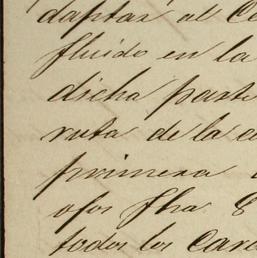 daptar al Co
fluido en la
dicha parte
ruta de la co
primera
ofos fha
todos los Car